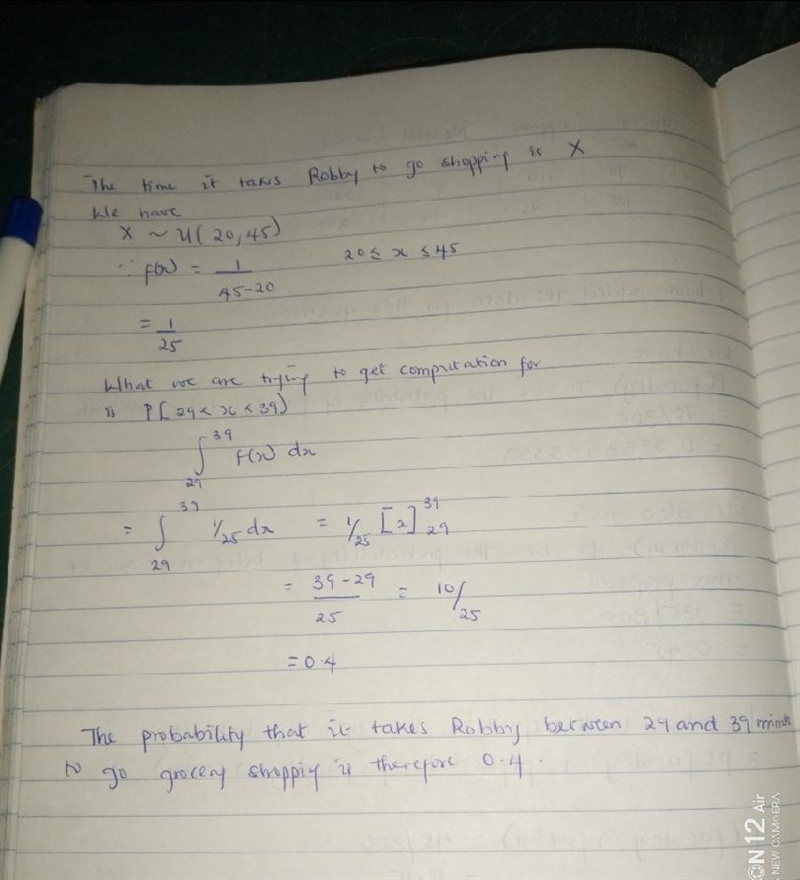 The time it takes Robby to go shopping is X
We have
X ~ U(20,45)
∵ f(x) = 1/45-20 20 ≤ x ≤ 45
= 1/25
What we are trying to get computation for
is P[29 < x < 39)
∫29^39 f(x) dx
= ∫29^39 1/25 dx = 1/25 [x]29^39
= 39-29/25 = 10/25
= 0.4
The probability that it takes Robby between 29 and 39 minuts
to go grocery shoppig is therefore 0.4.
12 Air
NEW CAMERA